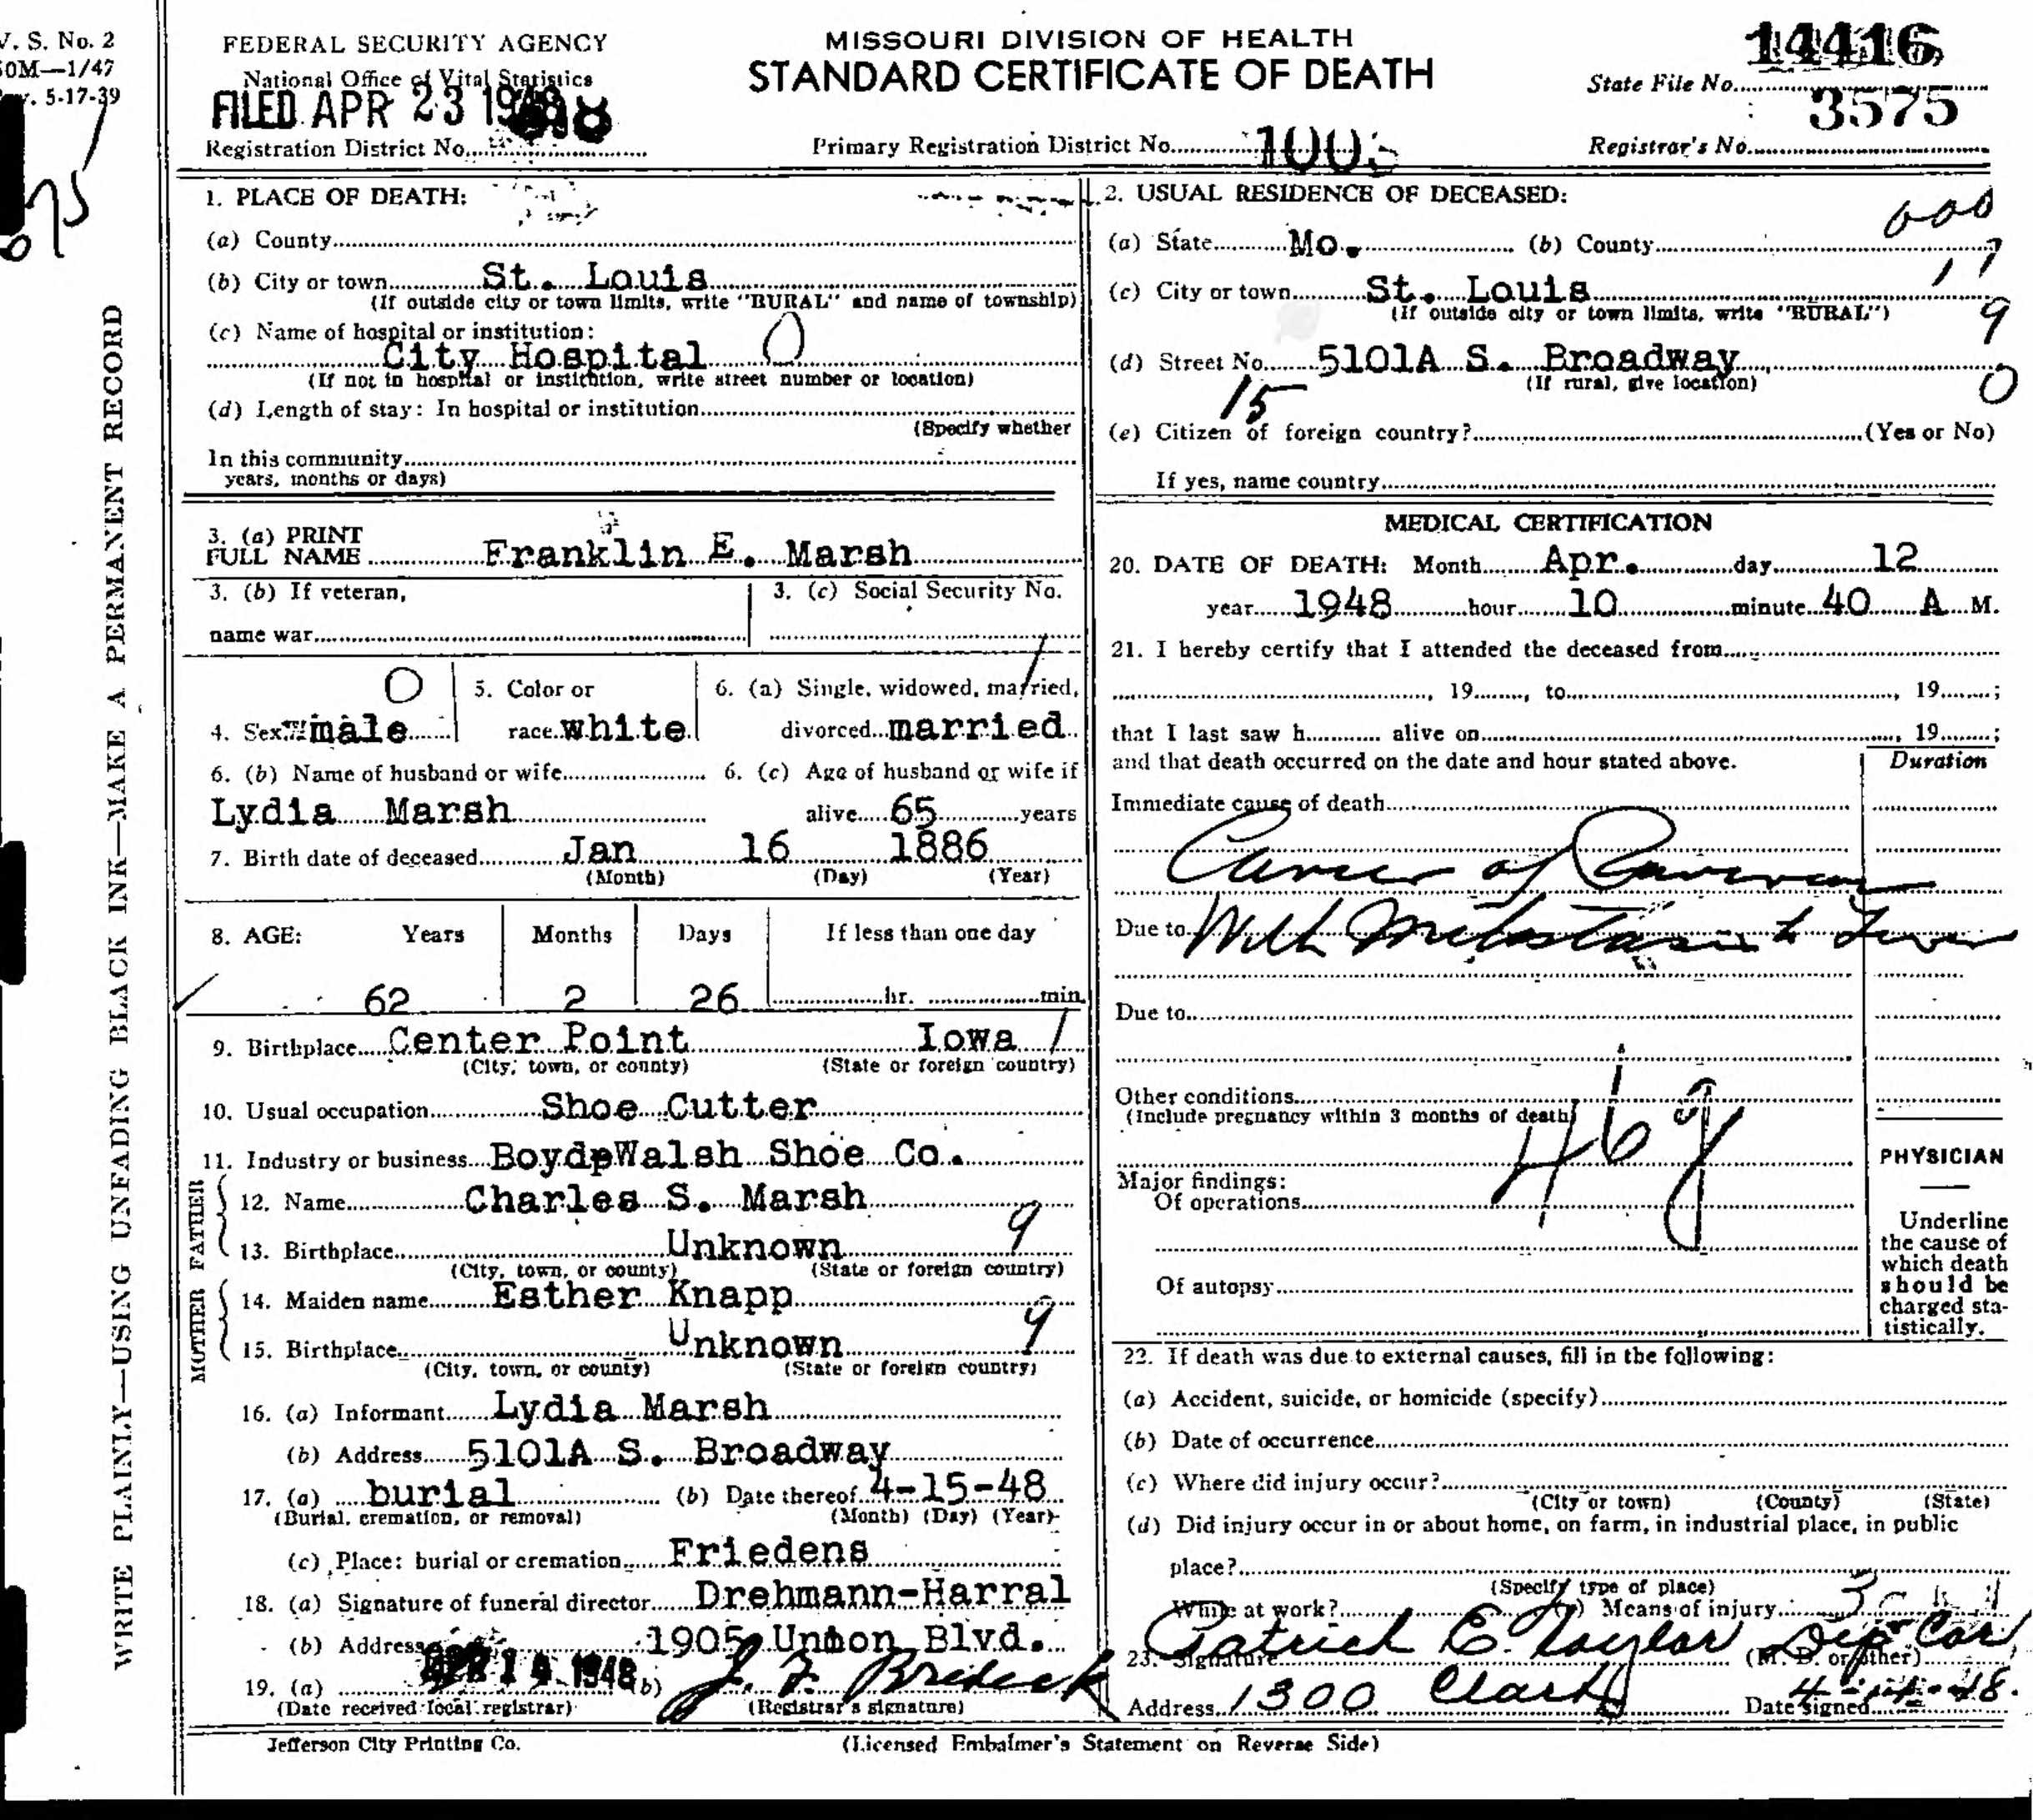 V. S. No. 2
50M—1/47
v. 5-17-39
FEDERAL SECURITY AGENCY
National Office of Vital Statistics
FILED APR 23 1948
Registration District No.
MISSOURI DIVISION OF HEALTH
STANDARD CERTIFICATE OF DEATH
Primary Registration District No. 1003
State File No. 14416
Registrar's No. 3575
WRITE PLAINLY—USING UNFADING BLACK INK—MAKE A PERMANENT RECORD
1. PLACE OF DEATH:
(a) County
(b) City or town St. Louis
(If outside city or town limits, write "RURAL" and name of township)
(c) Name of hospital or institution:
City Hospital 0
(If not in hospital or institution, write street number or location)
(d) Length of stay: In hospital or institution
(Specify whether
In this community
years, months or days)
2. USUAL RESIDENCE OF DECEASED:
000
(a) State Mo. (b) County
17
(c) City or town St. Louis
(If outside city or town limits, write "RURAL")
9
(d) Street No. 5101A S. Broadway
(If rural, give location)
0
15
(e) Citizen of foreign country? (Yes or No)
If yes, name country
3. (a) PRINT
FULL NAME Franklin E. Marsh
3. (b) If veteran,
name war
3. (c) Social Security No.
4. Sex male 0
5. Color or
race white
6. (a) Single, widowed, married,
divorced married
6. (b) Name of husband or wife
Lydia Marsh
6. (c) Age of husband or wife if
alive 65 years
7. Birth date of deceased Jan 16 1886
(Month) (Day) (Year)
8. AGE: Years Months Days If less than one day
62 2 26 hr. min.
9. Birthplace Center Point Iowa 1
(City, town, or county) (State or foreign country)
10. Usual occupation Shoe Cutter
11. Industry or business BoydpWalsh Shoe Co.
FATHER
12. Name Charles S. Marsh
13. Birthplace Unknown 9
(City, town, or county) (State or foreign country)
MOTHER
14. Maiden name Esther Knapp
15. Birthplace Unknown 9
(City, town, or county) (State or foreign country)
16. (a) Informant Lydia Marsh
(b) Address 5101A S. Broadway
17. (a) burial (b) Date thereof 4-15-48
(Burial, cremation, or removal) (Month) (Day) (Year)
(c) Place: burial or cremation Friedens
18. (a) Signature of funeral director Drehmann-Harral
(b) Address 1905 Union Blvd.
19. (a) APR 14 1948 (b) J. F. Bredeck
(Date received local registrar) (Registrar's signature)
MEDICAL CERTIFICATION
20. DATE OF DEATH: Month Apr. day 12
year 1948 hour 10 minute 40 A M.
21. I hereby certify that I attended the deceased from
, 19 , to , 19 ;
that I last saw h alive on , 19 ;
and that death occurred on the date and hour stated above.
Duration
Immediate cause of death
Cancer of
Due to With Metastasis to Liver
Due to
Other conditions
(Include pregnancy within 3 months of death)
46g
Major findings:
Of operations
Of autopsy
PHYSICIAN
Underline
the cause of
which death
should be
charged sta-
tistically.
22. If death was due to external causes, fill in the following:
(a) Accident, suicide, or homicide (specify)
(b) Date of occurrence
(c) Where did injury occur?
(City or town) (County) (State)
(d) Did injury occur in or about home, on farm, in industrial place, in public
place?
(Specify type of place)
While at work? (e) Means of injury
23. Signature Patrick E. Taylor Dep Cor
(M. D. or other)
Address 1300 Clark Date signed 4-14-48.
Jefferson City Printing Co.
(Licensed Embalmer's Statement on Reverse Side)